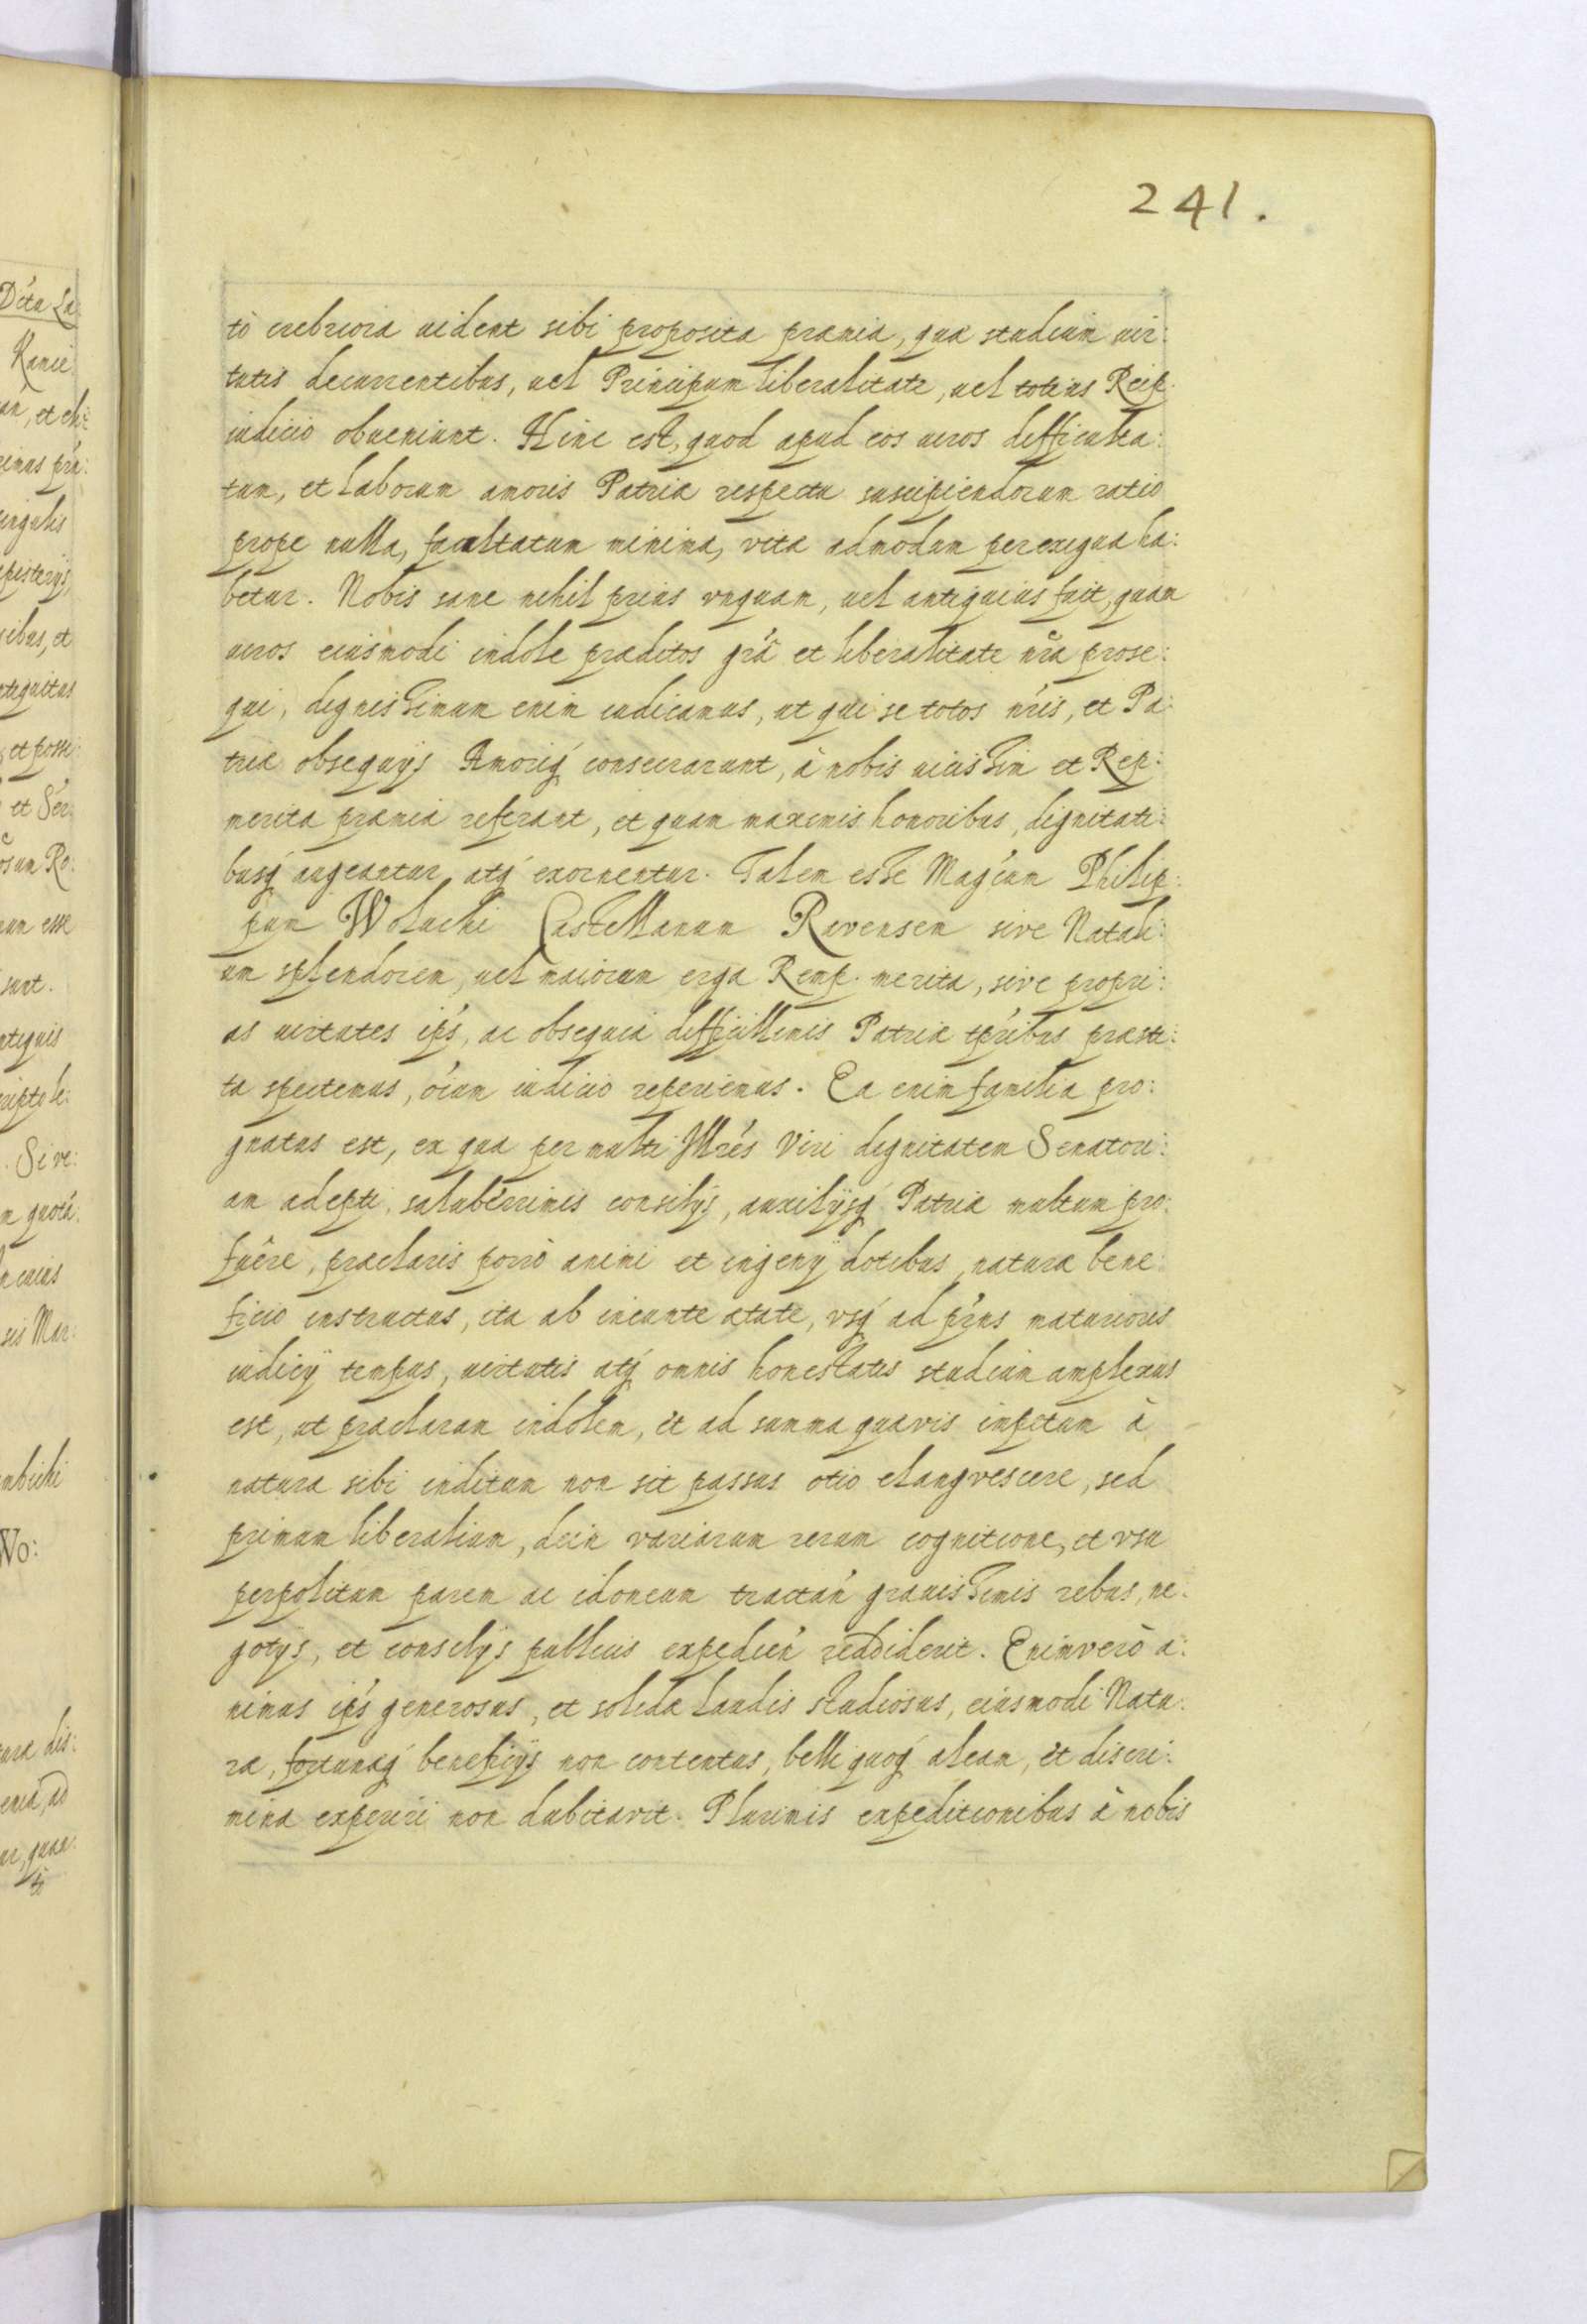 241.
tò crebriora uident sibi proposita præmia, quæ studium uir:
tutis decurrentibus, uel Principum liberalitate, uel totius Reip.
iudicio obueniunt. Hinc est, quod apud eos uiros difficulta:
tum, et laborum amoris Patriæ respectu suscipiendorum ratio
prope nulla, facultatum minima, vitæ admodum perexigua ha:
betur. Nobis sane nihil prius vnquam, uel antiquius fuit, quam
uiros eiusmodi indole præditos grâ et liberalitate nrâ prose:
qui, dignissimum enim iudicamus, ut qui se totos nris, et Pa:
triæ obsequÿs Amoriq́ consecrarunt, à nobis uicissim et Rep:
merita præmia referant, et quam maximis honoribus, dignitati:
busq́ augeantur, atq́ exornentur. Talem esse Magćum Philip:
pum Wolucki Castellanum Ravensem sive Natali:
um splendorem, uel maiorum erga Remp. merita, sive propri:
as uirtutes ips, ac obsequia difficillimis Patriæ tpribus præsti:
ta spectemus, oium iudicio reperiemus. Ea enim familia pro:
gnatus est, ex qua permulti Illres Viri dignitatem Senatori:
am adepti, saluberrimis consilÿs, auxilÿsq́ Patriæ multum pro:
fuêre, præclaris porrò animi et ingenÿ dotibus, naturæ bene:
ficio instructus, ita ab ineunte ætate, vsq́ ad prns maturioris
iudicÿ tempus, uirtutis atq́ omnis honestatis studium amplexus
est, ut præclaram indolem, et ad summa quævis impetum à
natura sibi inditum non sit passus otio elangvescere, sed
primum liberalium, dein variarum rerum cognitione, et vsu
perpolitum parem ac idoneum tractań grauissimis rebus, ne:
gotÿs, et consilÿs publicis expedień reddiderit. Enimverò a:
nimus ips generosus, et solidæ laudis studiosus, eiusmodi Natu:
ræ, fortunæq́ beneficÿs non contentus, belli quoq́ aleam, et discri:
mina experiri non dubitavit. Plurimis expeditionibus à nobis